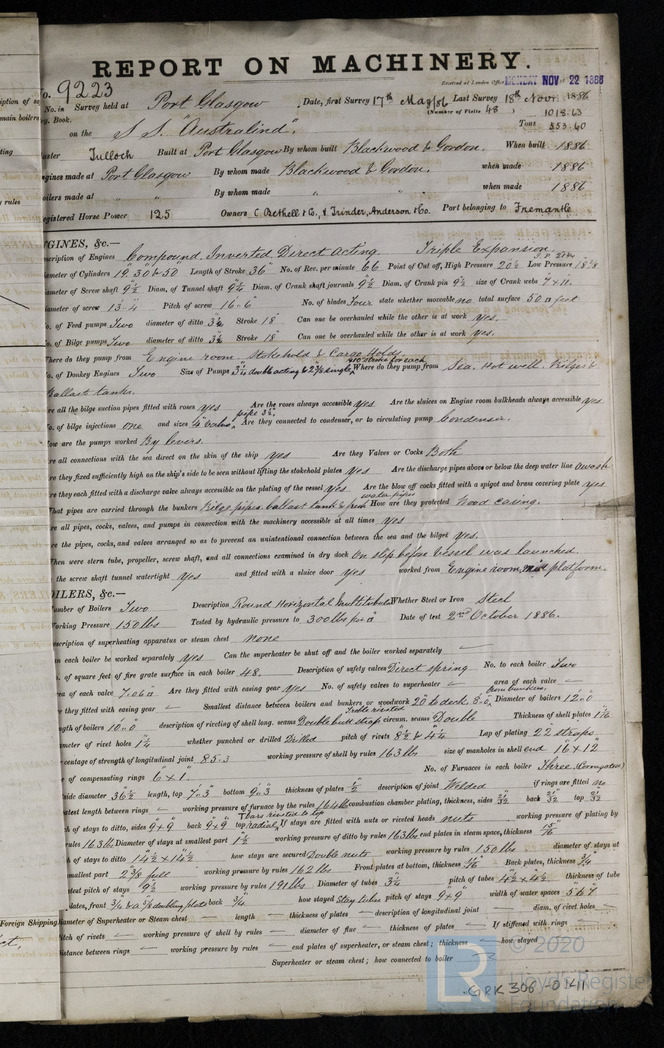 REPORT ON MACHINERY.
No. 9223
Received at London Office MONDAY NOV 22 1886
No. in Survey held at Port Glasgow , Date, first Survey 17th May/86 Last Survey 18th Novr. 1886
Book. (Number of Visits 48 ) 1018.63
on the S.S. "Australind". Tons 553.40
Master Tulloch Built at Port Glasgow By whom built Blackwood & Gordon. When built 1886
Engines made at Port Glasgow By whom made Blackwood & Gordon. when made 1886
Boilers made at " By whom made " " when made 1886
Registered Horse Power 125 Owners C. Bethell & Co., & Trinder, Anderson & Co. Port belonging to Fremantle
ENGINES, &c.—
Description of Engines Compound Inverted Direct Acting. Triple Expansion.
Diameter of Cylinders 19", 30" & 50" Length of Stroke 36" No. of Rev. per minute 66 Point of Cut off, High Pressure 20½ Low Pressure
Diameter of Screw shaft 9½ Diam. of Tunnel shaft 9¼ Diam. of Crank shaft journals 9½ Diam. of Crank pin 9½ size of Crank webs 7 × 11.
Diameter of screw 13-4 Pitch of screw 16-6 No. of blades Four state whether moveable no total surface 50 □ feet
No. of Feed pumps Two diameter of ditto 3½ Stroke 18" Can one be overhauled while the other is at work yes.
No. of Bilge pumps Two diameter of ditto 3½ Stroke 18" Can one be overhauled while the other is at work yes.
Where do they pump from Engine room, Stokehold & Cargo Holds
No. of Donkey Engines Two Size of Pumps double acting & single Where do they pump from Sea. Hot well. Bilges &
Ballast tanks.
Are all the bilge suction pipes fitted with roses yes Are the roses always accessible yes Are the sluices on Engine room bulkheads always accessible yes
No. of bilge injections one and sizes 4" valve, pipe 3½ Are they connected to condenser, or to circulating pump Condenser.
How are the pumps worked By levers.
Are all connections with the sea direct on the skin of the ship yes Are they Valves or Cocks Both
Are they fixed sufficiently high on the ship's side to be seen without lifting the stokehold plates yes Are the discharge pipes above or below the deep water line awash
Are they each fitted with a discharge valve always accessible on the plating of the vessel yes Are the blow off cocks fitted with a spigot and brass covering plate yes
What pipes are carried through the bunkers Bilge pipes, ballast tank & fresh water pipes How are they protected Wood casing.
Are all pipes, cocks, valves, and pumps in connection with the machinery accessible at all times yes
Are the pipes, cocks, and valves arranged so as to prevent an unintentional connection between the sea and the bilges yes.
When were stern tube, propeller, screw shaft, and all connections examined in dry dock On slip before vessel was launched.
Is the screw shaft tunnel watertight yes and fitted with a sluice door yes worked from Engine room, mid platform.
BOILERS, &c.—
Number of Boilers Two Description Round Horizontal Multitubular Whether Steel or Iron Steel
Working Pressure 150 lbs Tested by hydraulic pressure to 300 lbs per □ Date of test 2nd October 1886.
Description of superheating apparatus or steam chest none
Can each boiler be worked separately yes Can the superheater be shut off and the boiler worked separately —
No. of square feet of fire grate surface in each boiler 48. Description of safety valves Direct spring No. to each boiler Two
Area of each valve 7.06 □ Are they fitted with easing gear yes No. of safety valves to superheater — area of each valve —
Are they fitted with easing gear — Smallest distance between boilers and bunkers or woodwork 20" to deck, from bunkers. Diameter of boilers 12.0
Length of boilers 10.0 description of riveting of shell long. seams Double butt strap treble riveted circum. seams Double Thickness of shell plates
Diameter of rivet holes 1¼ whether punched or drilled Drilled pitch of rivets 8½ & 4¼ Lap of plating 22 straps
Percentage of strength of longitudinal joint 85.3 working pressure of shell by rules 163 lb size of manholes in shell end 16 × 12
Size of compensating rings 6 × 1 No. of Furnaces in each boiler Three (Corrugated)
Outside diameter 36½ length, top 7.3 bottom 9.3 thickness of plates ½ description of joint Welded if rings are fitted no
Greatest length between rings — working pressure of furnace by the rules 164 lb combustion chamber plating, thickness, sides back top
Pitch of stays to ditto, sides 9×9 back 9×9 top T bars riveted to top radial If stays are fitted with nuts or riveted heads nuts working pressure of plating by
rules 163 lb Diameter of stays at smallest part 1½ working pressure of ditto by rules 163 lb end plates in steam space, thickness
Pitch of stays to ditto 14½ × 14½ how stays are secured Double nuts working pressure by rules 150 lb diameter of stays at
smallest part 2⅜ full working pressure by rules 162 lb Front plates at bottom, thickness Back plates, thickness ¾
Greatest pitch of stays 9½ working pressure by rules 191 lbs. Diameter of tubes 3¼ pitch of tubes 4½ × 4½ thickness of tube
plates, front ¾ back ¾ how stayed Stay tubes pitch of stays 9×9 width of water spaces 5 & 7
Diameter of Superheater or Steam chest — length — thickness of plates — description of longitudinal joint — diam. of rivet holes —
Pitch of rivets — working pressure of shell by rules — diameter of flue — thickness of plates — If stiffened with rings —
Distance between rings — working pressure by rules — end plates of superheater, or steam chest; thickness — how stayed
Superheater or steam chest; how connected to boiler
Foreign Shipping
© 2020
LR Lloyd's Register
Foundation
GPK 306 - 0141